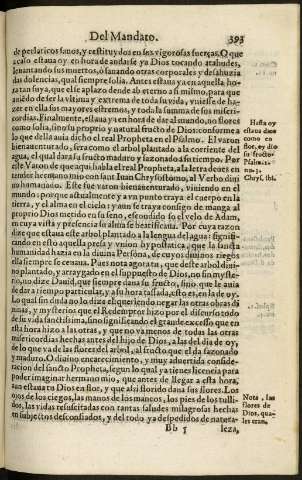 Del Mandato. 393
de perlaticos sanos, y restituydos en sus vigorosas fuerças. O que
acaso estaua oy en hora de andarse ya Dios tocando atahudes,
leuantando sus muertos, ò sanando otras corporales y desahuzia
das dolencias, qual siempre solia. Antes estaua ya en aquella ho-
ra tan suya, que el se aplazo dende ab eterno a si mismo, para que
auiẽdo de ser la vltima y extrema de toda su vida, viniesse de ha-
zer en ella sus mayores estremos, y toda la summa de sus miseri-
cordias. Finalmente, estaua ya en hora de dar al mundo, no flores
como solia, sino su proprio y natural fructo de Dios: conforme a
lo que del auia dicho el real Propheta en el Psalmo. El varon
bienauenturado, sera como el arbol plantado a la corriente del
agua, el qual dara su fructo maduro y sazonado a su tiempo. Por
este Varon de que aqui habla el real Propheta, a la letra deue se en-
tender hermanissimo con san Iuan Chrysostomo, al Verbo diui
no humanado. Este fue varon bienauenturado, viniendo en el
mundo: porque actualmente y a vn punto traya el cuerpo en la
tierra, y el alma en el cielo: y aun se traya consigo de manga al
proprio Dios metido en su seno, escondido so el velo de Adam,
en cuya vista y presencia su alma se beatificaua. Por cuya razon
dize que estaua este arbol plantado a la lengua del agua: signifi-
cando en esto aquella presa y vnion hypostatica, que la sancta
humanidad hazia en la diuina Persona, de cuyos diuinos riegos
ella siempre se ceuaua. Pues nota agora tu, que deste arbol diui-
no plantado, y arraygado en el supposito de Dios, no sin myste-
rio, no dize Dauid, que siempre daria su fructo, sino que le auia
de dar a tiempo particular, y a su hora tassada, esto es, en la de oy.
Lo qual sin duda no lo dize el queriendo negar las otras obras di
uinas, y mysterios que el Redemptor hizo por el discurso todo
de su vida sanctissima, sino significando el grande excesso que en
esta hora hizo a las otras, y que no va menos de todas las otras
misericordias hechas antes del hijo de Dios, a las del dia de oy,
de lo que va de las flores del arbol, al fructo que el da sazonado
y maduro. O diuino encarecimiento, y muy aduertida conside-
racion del sancto Propheta, segun lo qual ya tienes licencia para
poder imaginar hermano mio, que antes de llegar a esta hora,
aun estaua tu Dios en flor, y que assi florido daua sus flores. Los
ojos de los ciegos, las manos de los mancos, los pies de los tulli-
dos, las vidas resuscitadas con tantas saludes milagrosas hechas
en subjectos desconfiados, y del todo ya despedidos de natura-
Bb 5 leza,
Hasta oy
estuuo dios
como en
flor, oy dio
su fructo.
Psalm. 1.
nu. 3.
Chrys. ibi.
Nota, las
flores de
Dios, qua-
les eran.